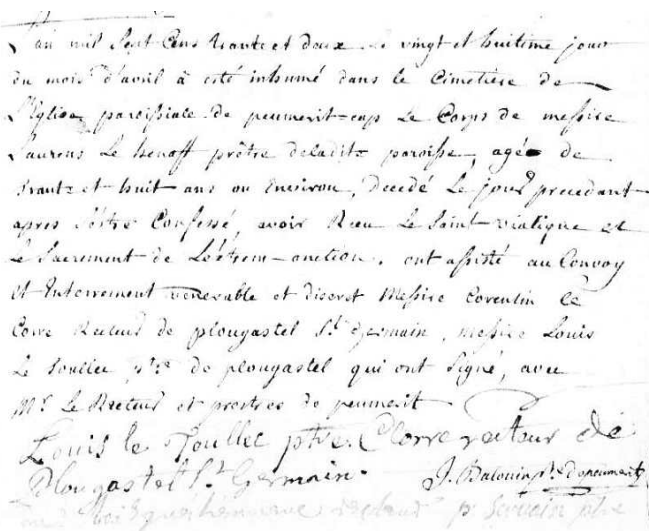 L'an mil Sept Cens trante et deux le vingt et huitime jour
du mois d'avril à esté inhumé dans le Cimetiere de
L'Eglise paroissiale de peumerit-cap le Corps de messire
Laurens Le henaff prêtre deladite paroisse, agée de
trante et huit ans ou Environ, decedé Le jour precedant
apres s'êstre Confessé, avoir Receu Le Saint viatique et
Le Sacrement de L'extrem-onction. ont assisté au Convoy
et Interrement venerable et discret Messire Corentin Le
Corre Recteur de plougastel St germain, messire Louis
Le Toullec ptre de plougastel qui ont Signé, avec
Mr Le Recteur et prestres de peumerit
Louis le Toullec ptre C Corre recteur de
Plougastel St Germain. J. Balouin ptre de peumerit
recteur p ptre